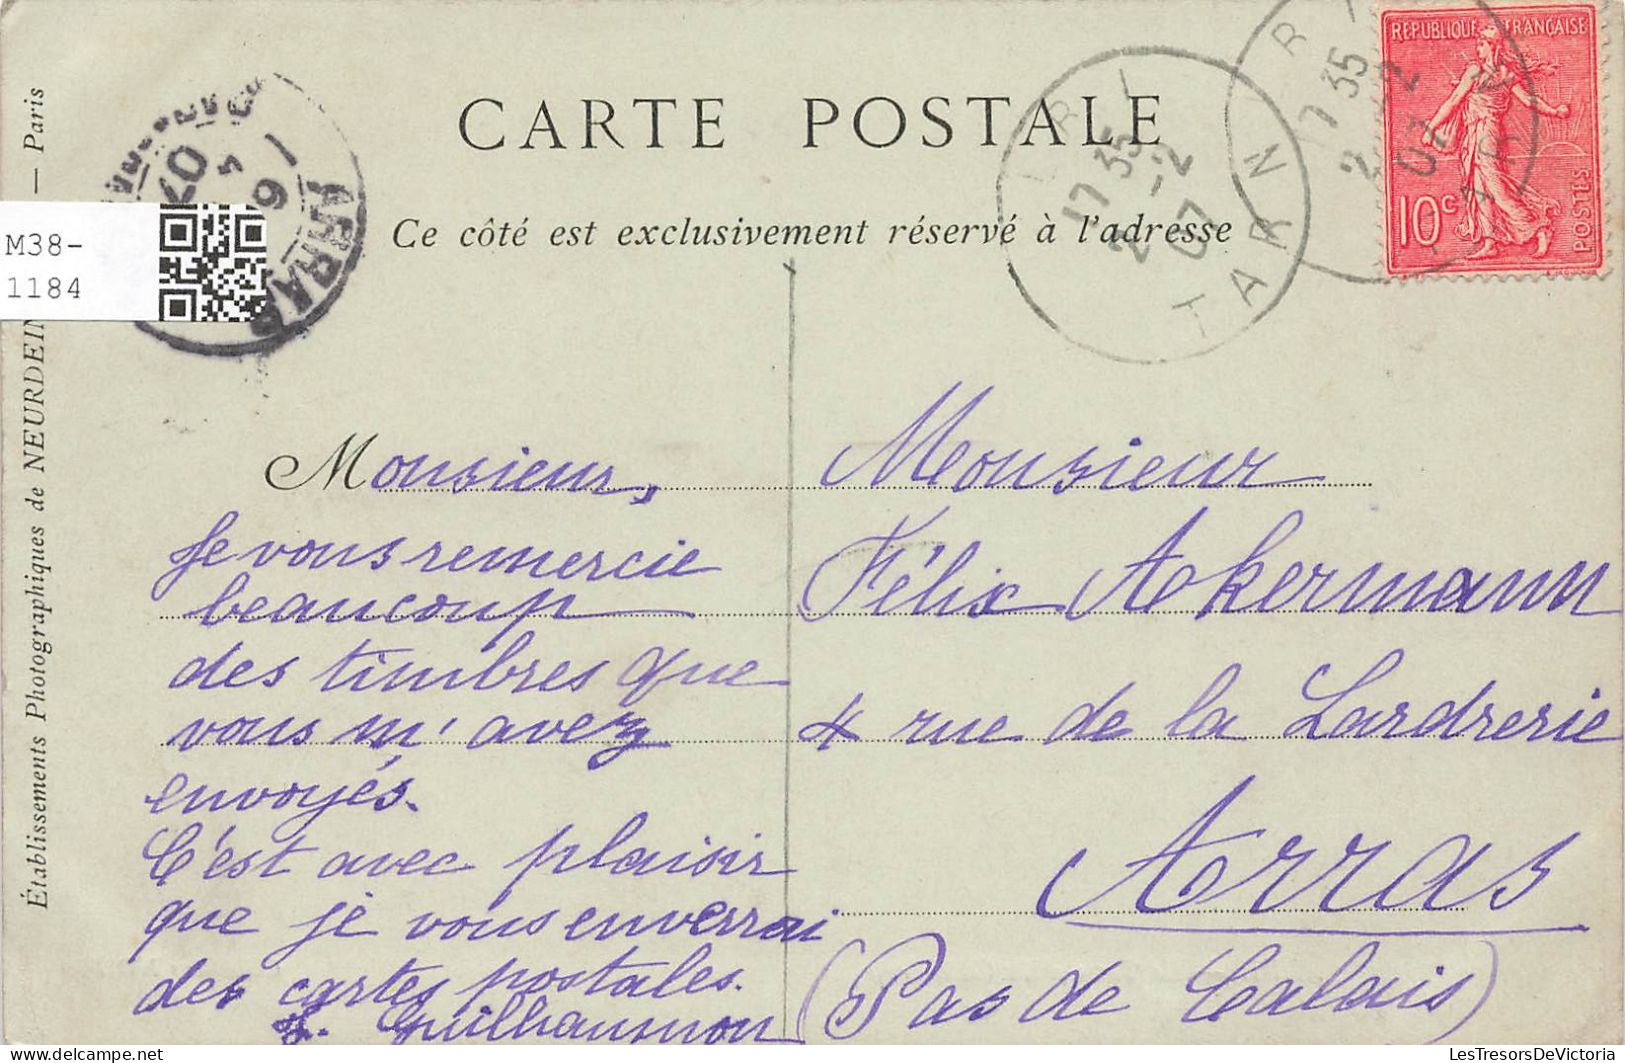 RÉPUBLIQUE FRANÇAISE
10c
POSTES
17 35
2 -2
07
TARN
17 35
2 -2
07
TARN
ARRAS
07
CARTE POSTALE
Ce côté est exclusivement réservé à l'adresse
M38-
1184
Établissements Photographiques de NEURDEIN
— Paris
Monsieur,
Je vous remercie
beaucoup
des timbres que
vous m'avez
envoyés.
C'est avec plaisir
que je vous enverrai
des cartes postales.
Guilhaumon
Monsieur
Félix Ackermann
4 rue de la Lardrerie
Arras
(Pas de Calais)
delcampe.net
LesTresorsDeVictoria